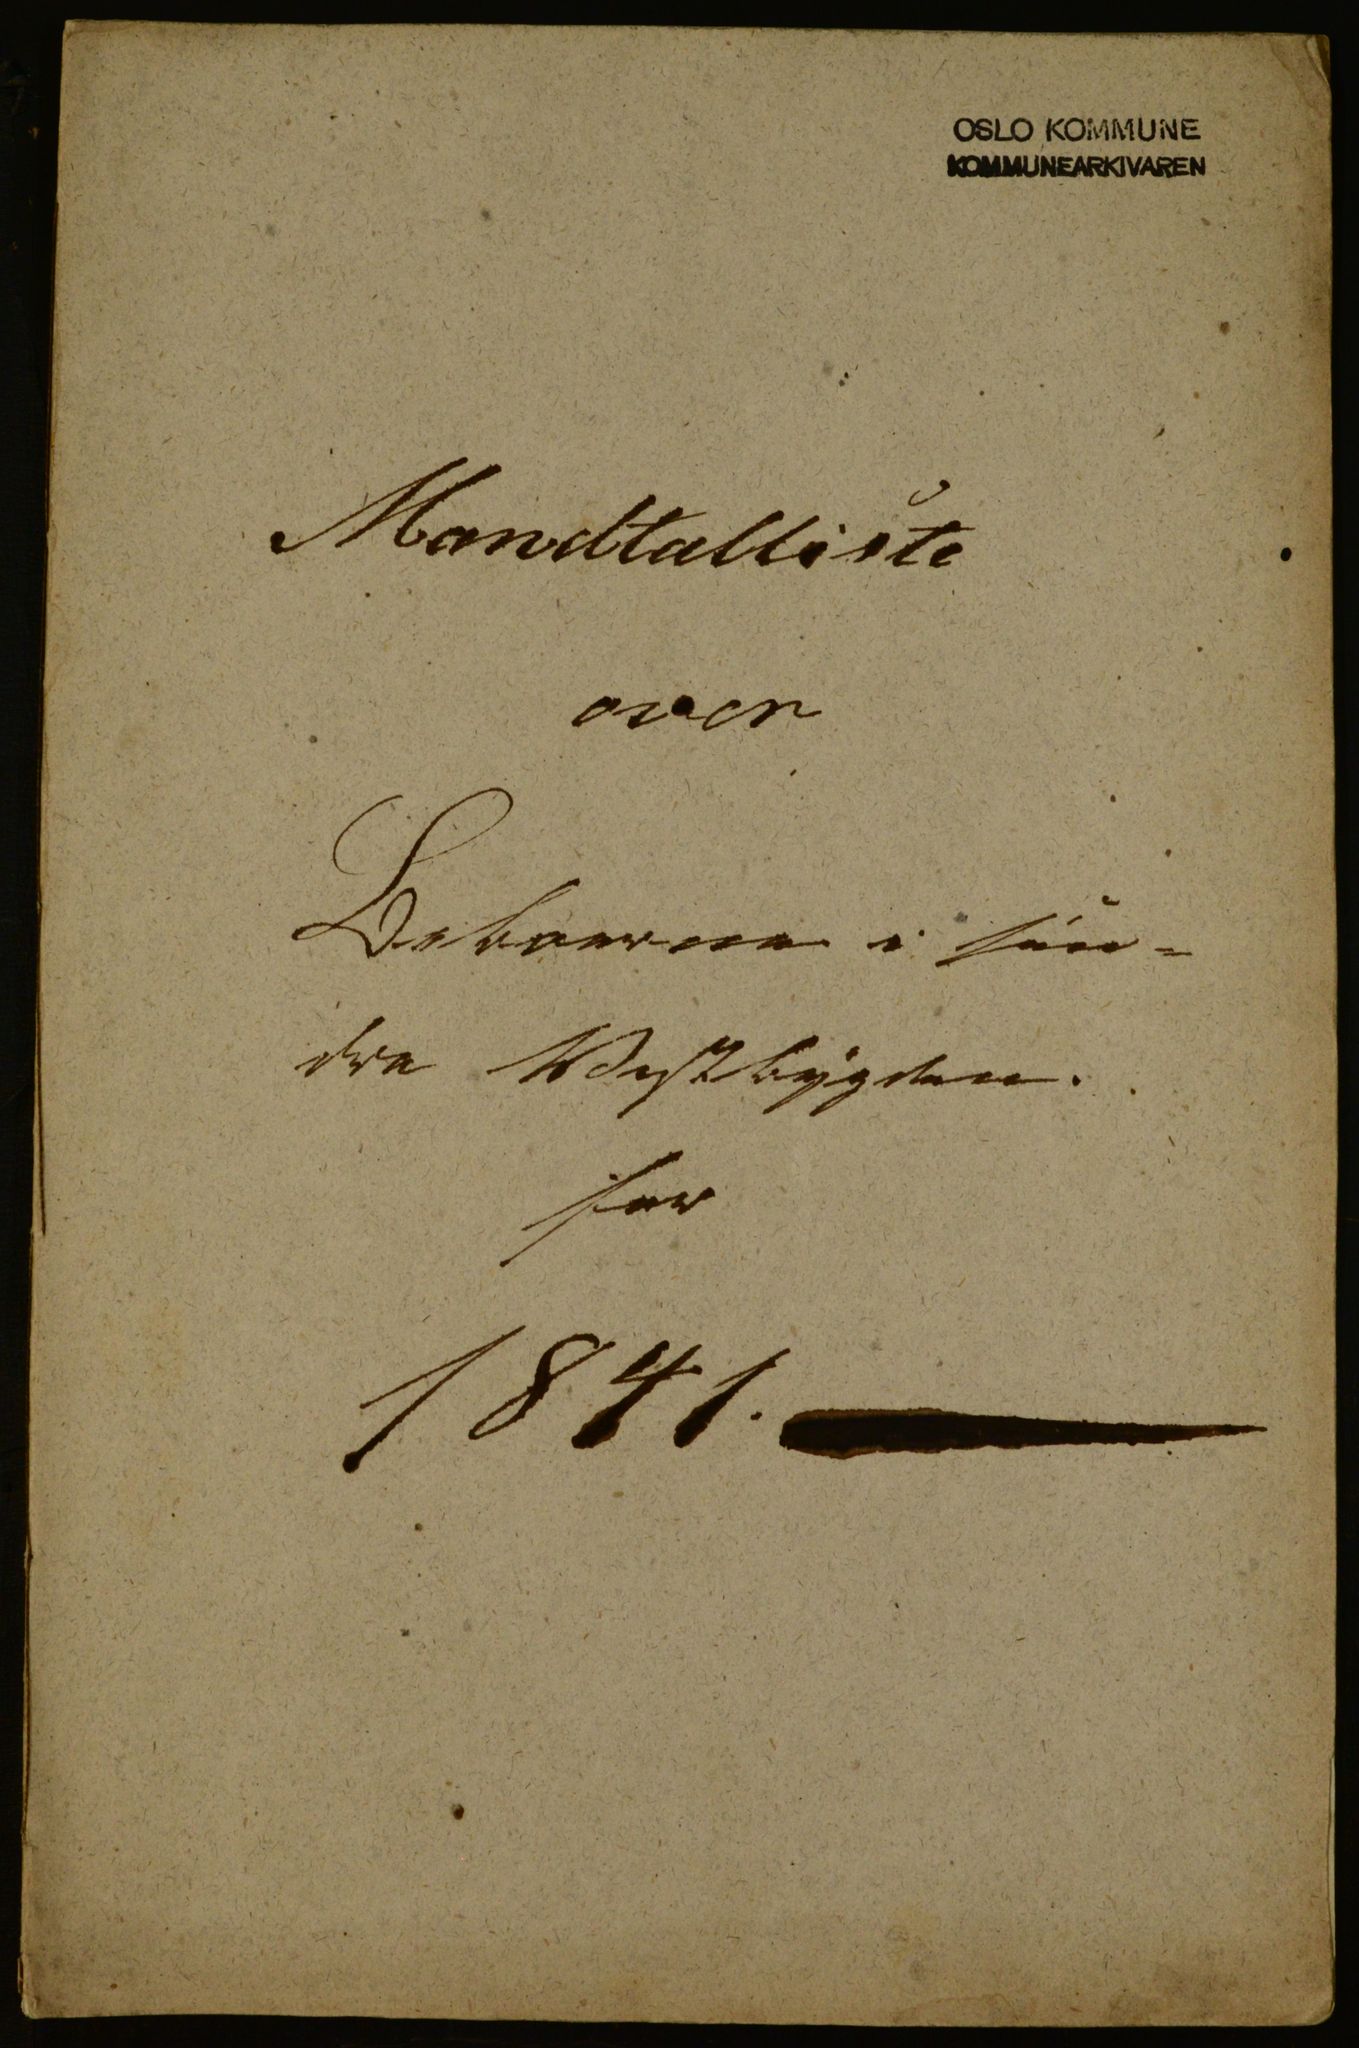 OSLO KOMMUNE
KOMMUNEARKIVAREN
Mandtalliste
over
Beboerne i søn=
dre Westbygden.
for
1841.